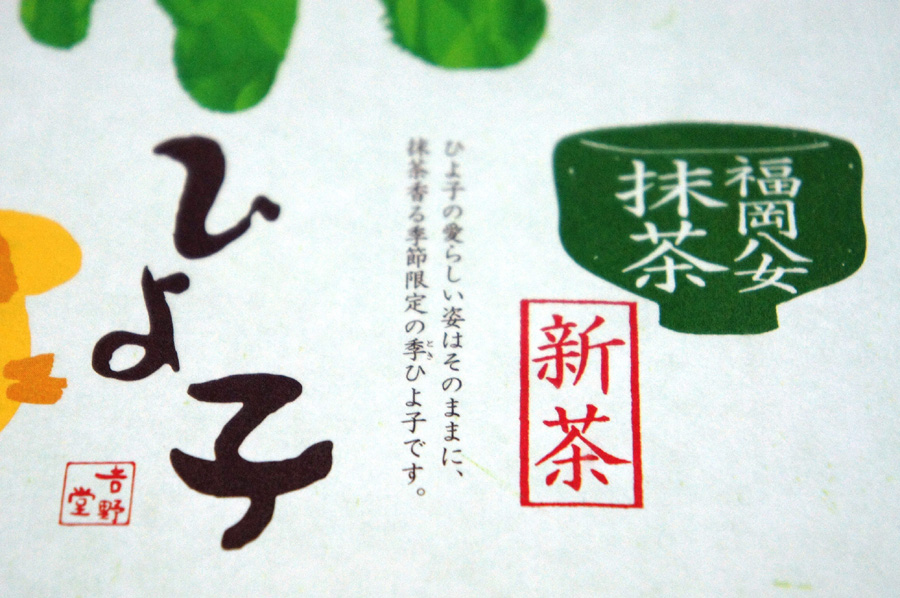 福岡八女
抹茶
新茶
ひよ子の愛らしい姿はそのままに、
抹茶香る季節限定の季ときひよ子です。
ひよ子
吉野
堂